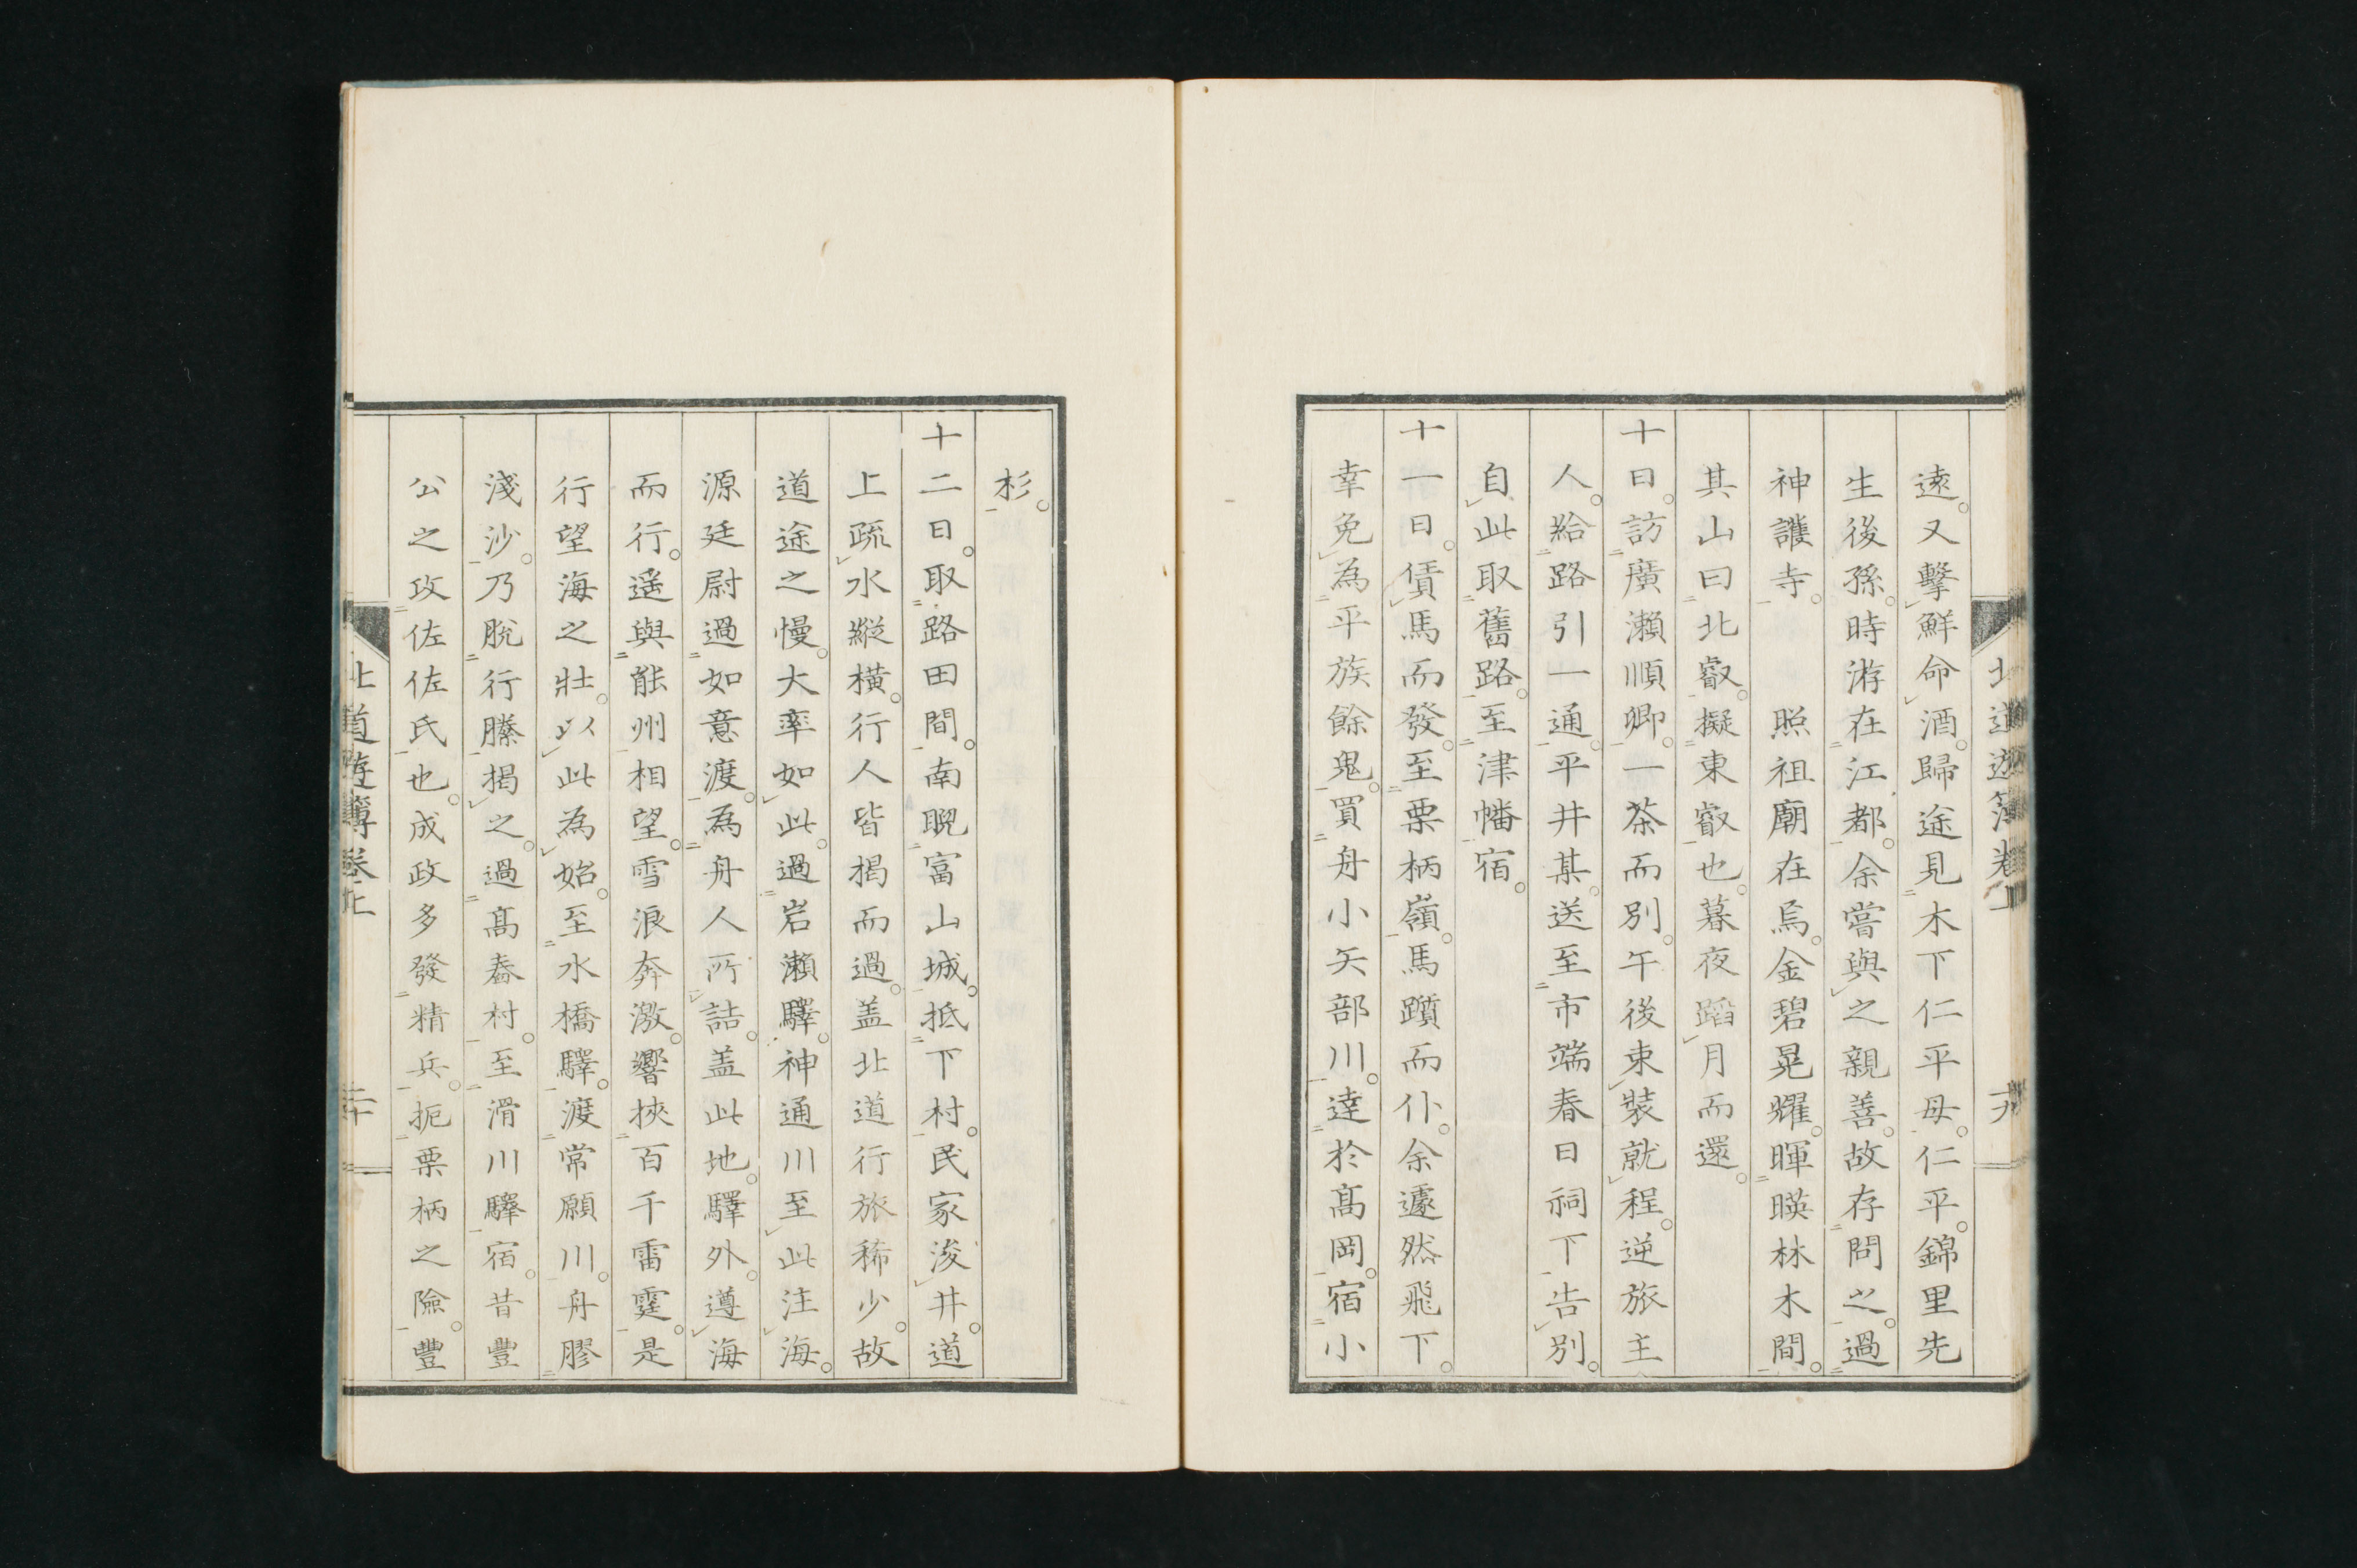 遠。又擊鮮命酒。歸途見木下仁平母。仁平。錦里先
生後孫。時游在江都。余嘗與之親善。故存問之。過
神護寺。　照祖廟在焉。金碧晃耀。暉暎林木間。
其山曰北叡。擬東叡也。暮夜蹈月而還。
十日。訪廣瀬順卿。一茶而別。午後束裝就程。逆旅主
人。給路引一通。平井某。送至市端春日祠下告別。
自此取舊路。至津幡宿。
十一日。僨馬而發。至栗柄嶺。馬躓而仆。余遽然飛下。
幸免為平族餘鬼。買舟小矢部川。達於高岡。宿小
杉。
十二日。取路田間。南睨富山城。抵下村。民家浚井。道
上疏水縱橫。行人皆揭而過。盖北道行旅稀少。故
道途之慢。大率如此。過岩瀬驛。神通川至此注海。
源廷尉過如意渡。為舟人所詰。盖此地。驛外。遵海
而行。遥與能州相望。雪浪奔激。響挾百千雷霆。是
行望海之壯。以此為始。至水橋驛。渡常願川。舟膠
淺沙。乃脫行縢揭之。過高舂村。至滑川驛宿。昔豐
公之攻佐佐氏也。成政多發精兵。扼栗柄之險。豐
北道遊簿卷上
十九
北道遊簿卷上
二十